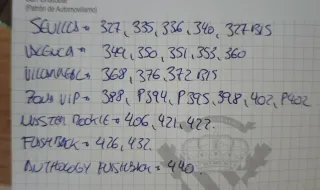 (Patrón de Automovilismo)
SEVILLA = 327, 335, 336, 340, 327 BIS
VALENCIA = 349, 350, 351, 353, 360
VILLARREAL = 368, 376, 372 BIS
ZONA VIP = 388, P394, P395, 398, 402, P402
MASTER ROOKIE = 406, 421, 422.
FLASHBACK = 426, 432.
ANTHOLOGY FLASHBACK = 440.